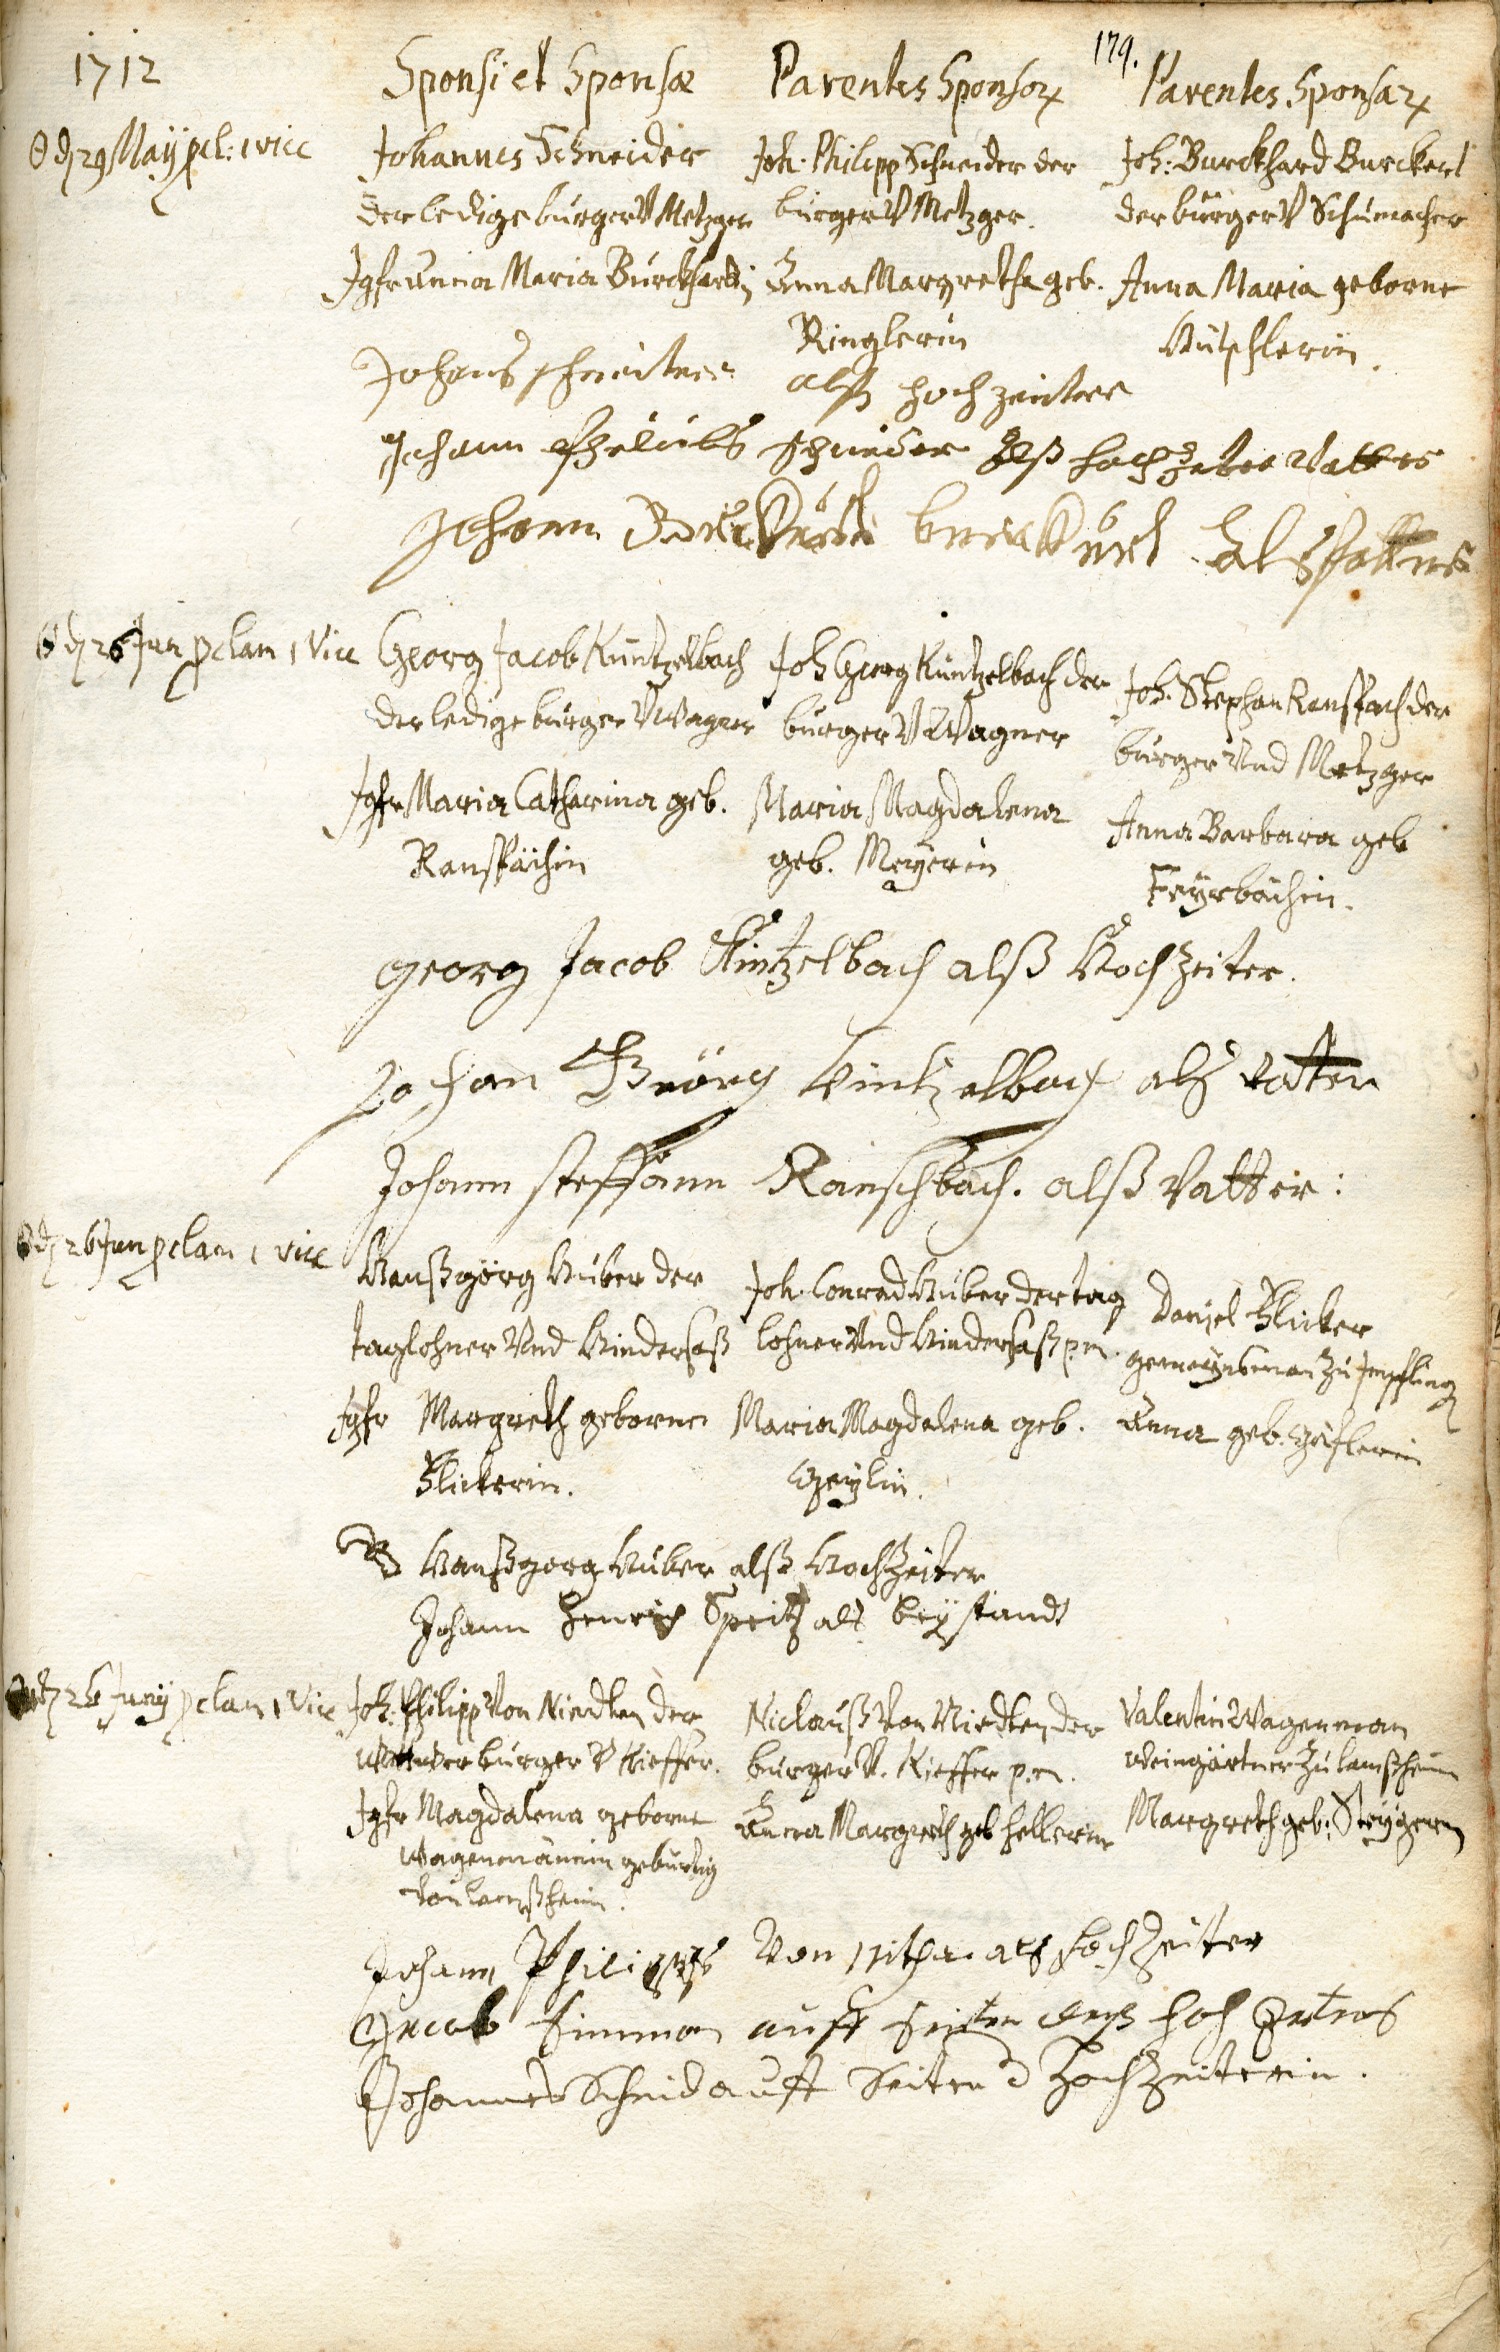 179.
1712
Sponsi et Sponsæ
Parentes Sponsor
Parentes Sponsar
d 29 Maÿ pcl: 1 vice
Johannes Schneider
der ledige burger V Metzger
Jgfr Anna Maria Burckhardtin
Joh. Philipp Schneider der
burger V Metzger.
Anna Margretha geb.
Ringlerin
Joh: Burckhard Burckert
der bürger V Schumacher
Anna Maria geborne
Johans schneider alß hoch zeiter
Johann schneider alß hochzeiter Vatters
Johann burckhart alß Vatters
d 26 Jun pclam 1 Vice
Georg Jacob Kuntzelbach
der ledige burger V Wagner
Jgfr Maria Catharina geb.
Ranspächin
Joh Georg Kuntzelbach der
burger V Wagner
Maria Magdalena
geb. Meyerin
Joh. Stephan Ranspach der
burger Und Metzger
Anna Barbara geb
Feyrbächin.
Georg Jacob Kintzelbach alß HochZeiter.
Johan Geörg Kintzelbach alß vatter
Johann steffann Ranschbach. alß Vatter:
d 26 Jun pclam 1 vice
Hanß görg Huber der
taglohner Und Hindersaß
Jgfr Margreth geborne
Blickerin.
Joh. Conrad Huber der tag
lohner Und Hindersaß p.m.
Maria Magdalena geb.
Geylin.
Daniel Blicker
gemeynsman zu Impfling
Anna geb.
Hanßgorg Huber alß HochZeiter
Johann Henrich Spritz als beÿstandt
d 26 Junÿ pclam 1 Vice
Joh: Philipp Von Niedten der
burger V Kieffer.
Jgfr Magdalena geborne
Wagenmännin geburtig
von Lamßheim.
Niclauß Von Niedten der
burger V. Kieffer p.m.
Anna Margreth geb Hellerin
Valentin Wagenman
Weingärtner Zu lamßheim
Margreth geb: Steygerin
Johann Philipps Von als hochZeiter
Jacob Simmon auff seiten deß hoch Zeiters
Johannes Scheid auff Seiten d HochZeiterin.